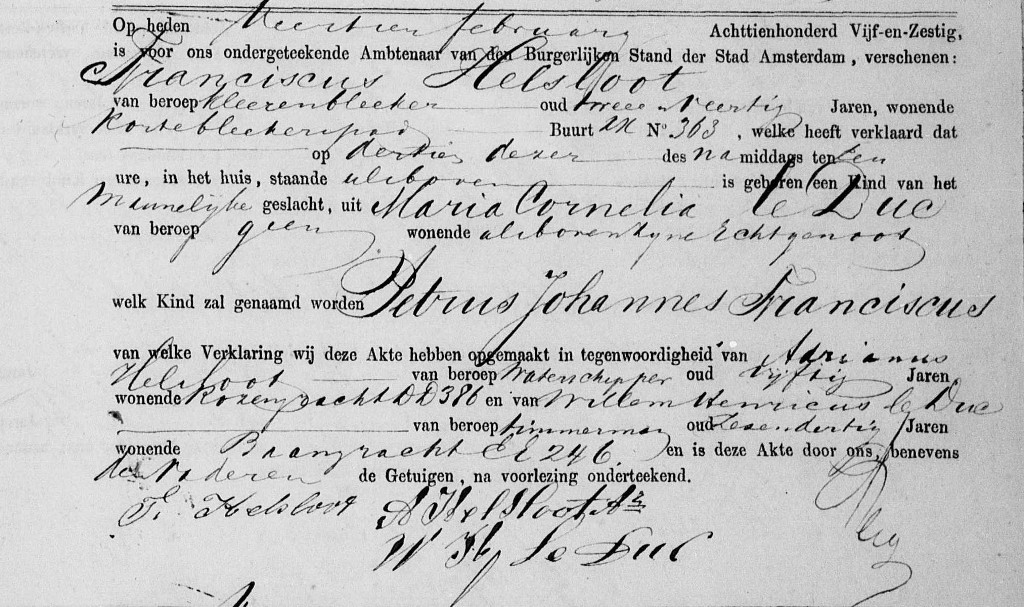 Op heden Veertien februarij Achttienhonderd Vijf-en-Zestig,
is voor ons ondergeteekende Ambtenaar van den Burgerlijken Stand der Stad Amsterdam, verschenen:
Franciscus Helsloot
van beroep kleerenbleeker oud twee en Veertig Jaren, wonende
Korte bleekerspad Buurt No. 363, welke heeft verklaard dat
op dertien dezer des namiddags ten een
ure, in het huis, staande alsboven is geboren een Kind van het
Mannelijke geslacht, uit Maria Cornelia le Duc
van beroep geen wonende alsboven zyne Echtgenoot
welk Kind zal genaamd worden Petrus Johannes Franciscus
van welke Verklaring wij deze Akte hebben opgemaakt in tegenwoordigheid van Adrianus
Helsloot van beroep Waterschipper oud Vijftig Jaren
wonende Rozengracht DD 386 en van Willem Henricus le Duc
van beroep timmerman oud Zesendertig Jaren
wonende Baangracht EE 246. en is deze Akte door ons, benevens
den Vader en de Getuigen, na voorlezing onderteekend.
F. Helsloot A Helsloot Az
W H le Duc